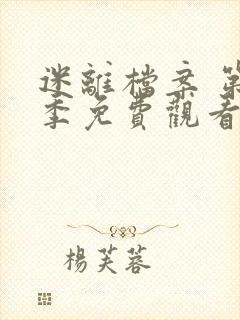 迷離檔案 第
季免費觀看
楊芙蓉